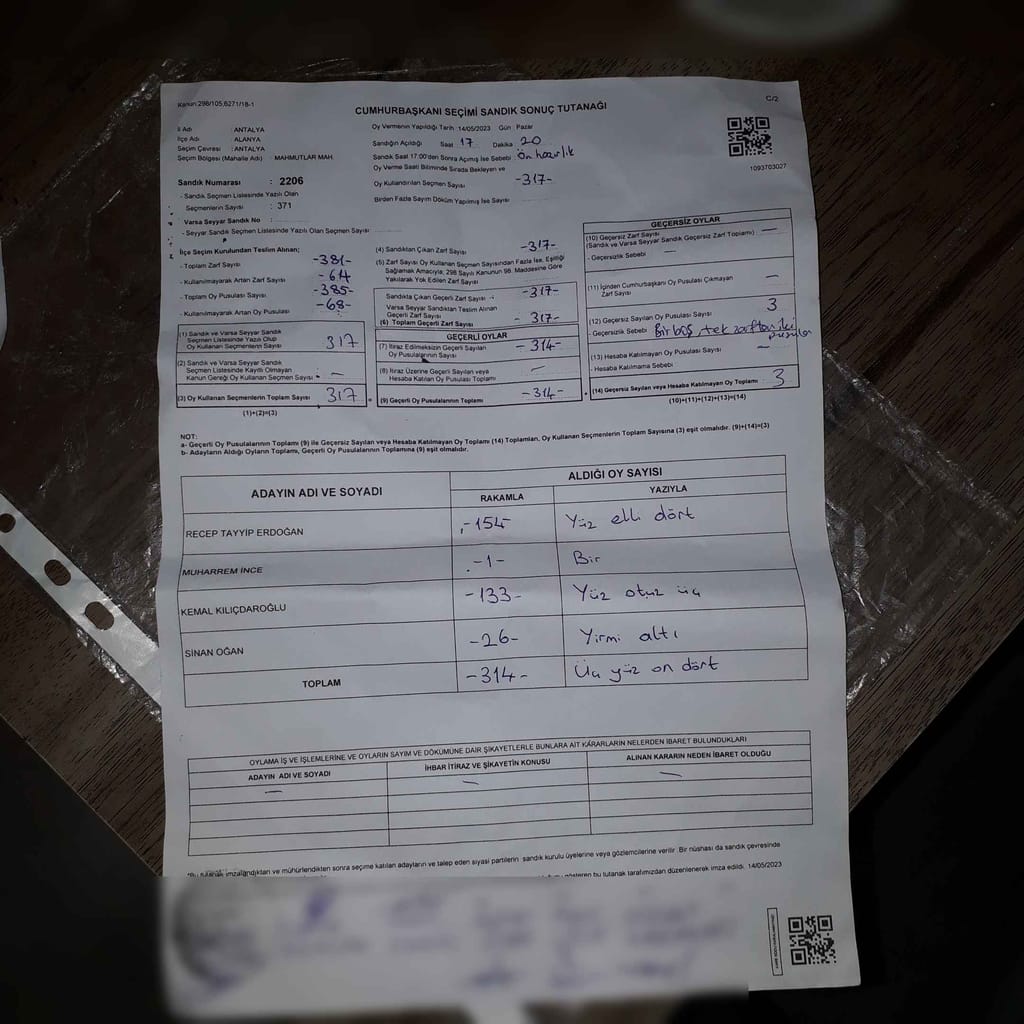 Kanun:298/105,6271/18-1
C/2
CUMHURBAŞKANI SEÇİMİ SANDIK SONUÇ TUTANAĞI
İl Adı : ANTALYA
İlçe Adı : ALANYA
Seçim Çevresi : ANTALYA
Seçim Bölgesi (Mahalle Adı) : MAHMUTLAR MAH.
Oy Vermenin Yapıldığı Tarih :14/05/2023 Gün : Pazar
Sandığın Açıldığı Saat 17 Dakika 20
Sandık Saat 17:00'den Sonra Açımış İse Sebebi : Ön hazırlık
Oy Verme Saati Bitiminde Sırada Bekleyen ve
Oy Kullandırılan Seçmen Sayısı -317-
Birden Fazla Sayım Döküm Yapılmış İse Sayısı
1093703027
Sandık Numarası : 2206
- Sandık Seçmen Listesinde Yazılı Olan
Seçmenlerin Sayısı : 371
Varsa Seyyar Sandık No :
- Seyyar Sandık Seçmen Listesinde Yazılı Olan Seçmen Sayısı
İlçe Seçim Kurulundan Teslim Alınan;
- Toplam Zarf Sayısı -381-
- Kullanılmayarak Artan Zarf Sayısı -64
- Toplam Oy Pusulası Sayısı -385-
- Kullanılmayarak Artan Oy Pusulası -68-
(1) Sandık ve Varsa Seyyar Sandık
Seçmen Listesinde Yazılı Olup
Oy Kullanan Seçmenlerin Sayısı 317
(2) Sandık ve Varsa Seyyar Sandık
Seçmen Listesinde Kayıtlı Olmayan
Kanun Gereği Oy Kullanan Seçmen Sayısı : -
(3) Oy Kullanan Seçmenlerin Toplam Sayısı 317
(1)+(2)=(3)
(4) Sandıktan Çıkan Zarf Sayısı -317-
(5) Zarf Sayısı Oy Kullanan Seçmen Sayısından Fazla İse, Eşitliği
Sağlamak Amacıyla; 298 Sayılı Kanunun 98. Maddesine Göre
Yakılarak Yok Edilen Zarf Sayısı
Sandıkta Çıkan Geçerli Zarf Sayısı -317-
Varsa Seyyar Sandıktan Teslim Alınan
Geçerli Zarf Sayısı
(6) Toplam Geçerli Zarf Sayısı - 317-
GEÇERLİ OYLAR
(7) İtiraz Edilmeksizin Geçerli Sayılan
Oy Pusulalarının Sayısı - 314-
(8) İtiraz Üzerine Geçerli Sayılan veya
Hesaba Katılan Oy Pusulası Toplamı -
(9) Geçerli Oy Pusulalarının Toplamı -314-
GEÇERSİZ OYLAR
(10) Geçersiz Zarf Sayısı
(Sandık ve Varsa Seyyar Sandık Geçersiz Zarf Toplamı) : -
- Geçersizlik Sebebi : -
(11) İçinden Cumhurbaşkanı Oy Pusulası Çıkmayan
Zarf Sayısı -
(12) Geçersiz Sayılan Oy Pusulası Sayısı 3
- Geçersizlik Sebebi Bir boş, tek zarftan iki
pusula
(13) Hesaba Katılmayan Oy Pusulası Sayısı -
- Hesaba Katılmama Sebebi
(14) Geçersiz Sayılan veya Hesaba Katılmayan Oy Toplamı : 3
(10)+(11)+(12)+(13)=(14)
NOT:
a- Geçerli Oy Pusulalarının Toplamı (9) ile Geçersiz Sayılan veya Hesaba Katılmayan Oy Toplamı (14) Toplamları, Oy Kullanan Seçmenlerin Toplam Sayısına (3) eşit olmalıdır. (9)+(14)=(3)
b- Adayların Aldığı Oyların Toplamı, Geçerli Oy Pusulalarının Toplamına (9) eşit olmalıdır.
ADAYIN ADI VE SOYADI
ALDIĞI OY SAYISI
RAKAMLA YAZIYLA
RECEP TAYYİP ERDOĞAN -154- Yüz elli dört
MUHARREM İNCE -1- Bir
KEMAL KILIÇDAROĞLU -133- Yüz otuz üç
SİNAN OĞAN -26- Yirmi altı
TOPLAM -314- Üç yüz on dört
OYLAMA İŞ VE İŞLEMLERİNE VE OYLARIN SAYIM VE DÖKÜMÜNE DAİR ŞİKAYETLERLE BUNLARA AİT KARARLARIN NELERDEN İBARET BULUNDUKLARI
ADAYIN ADI VE SOYADI İHBAR İTİRAZ VE ŞİKAYETİN KONUSU ALINAN KARARIN NEDEN İBARET OLDUĞU
- - -
"Bu tutanak imzalandıktan ve mühürlendikten sonra seçime katılan adayların ve talep eden siyasi partilerin sandık kurulu üyelerine veya gözlemcilerine verilir. Bir nüshası da sandık çevresinde
gösteren bu tutanak tarafımızdan düzenlenerek imza edildi. 14/05/2023